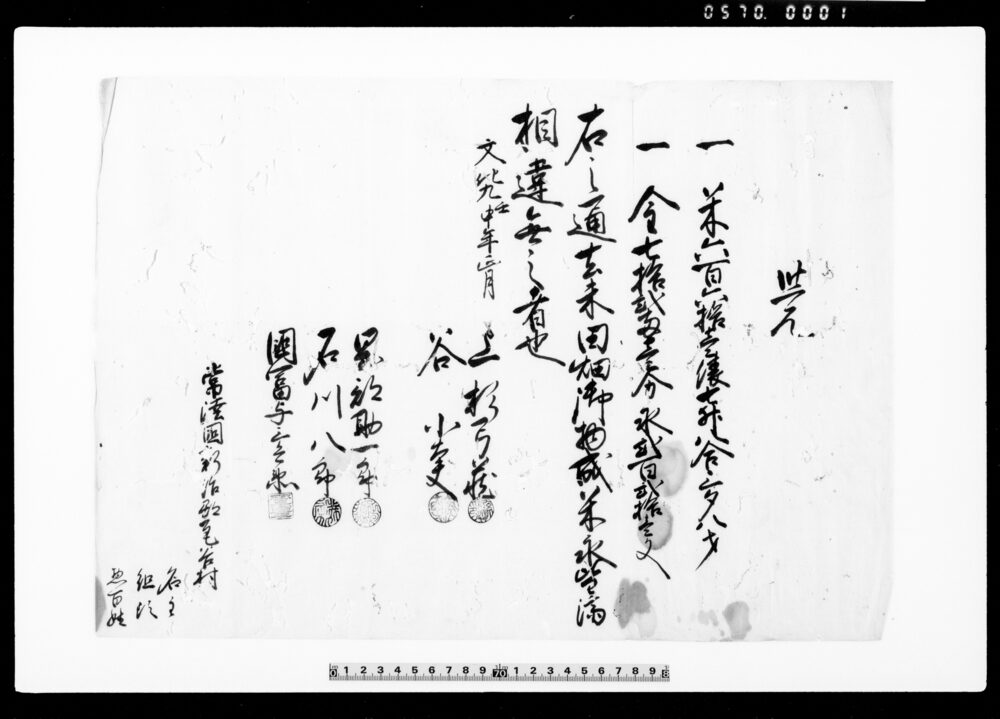 0570. 0001
覚
一 米六百六拾壱俵七升八合六夕八才
一 金七拾弐両三分永弐百弐拾三文
右之通去未田畑御物成米永皆済
相違無之者也
文政七申年正月
上
谷 小太夫
助一郎
石川八郎
国冨与一兵衛
常陸国新治郡 村
名主
組頭
惣百姓
0 1 2 3 4 5 6 7 8 9 70 1 2 3 4 5 6 7 8 9